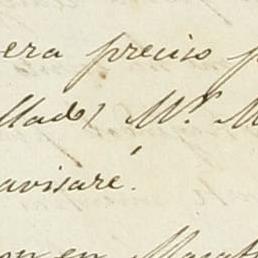 era preciso p
llado, Mr. M
avisaré.
on en Marat